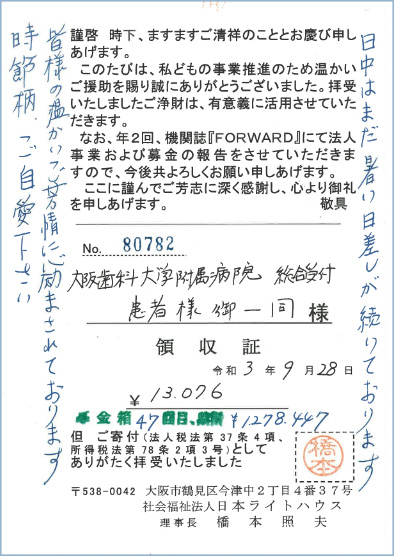 日中はまだ暑い日差しが続いております
謹啓 時下、ますますご清祥のこととお慶び申し
あげます。
このたびは、私どもの事業推進のため温かい
ご援助を賜り誠にありがとうございました。拝受
いたしましたご浄財は、有意義に活用させていた
だきます。
なお、年2回、機関誌『FORWARD』にて法人
事業および募金の報告をさせていただきま
すので、今後共よろしくお願い申しあげます。
ここに謹んでご芳志に深く感謝し、心より御礼
を申しあげます。 敬具
No. 80782
大阪歯科大学附属病院 総合受付
患者様御一同 様
領収証
令和 3 年 9 月 28 日
¥ 13,076
募金箱 47 回目、 ¥1,278,447
但 ご寄付(法人税法第37条4項、
所得税法第78条2項3号)として
ありがたく拝受いたしました
橋本
〒538-0042 大阪市鶴見区今津中2丁目4番37号
社会福祉法人日本ライトハウス
理事長 橋本照夫
皆様の温かいご芳情に励まされております
時節柄、ご自愛下さい